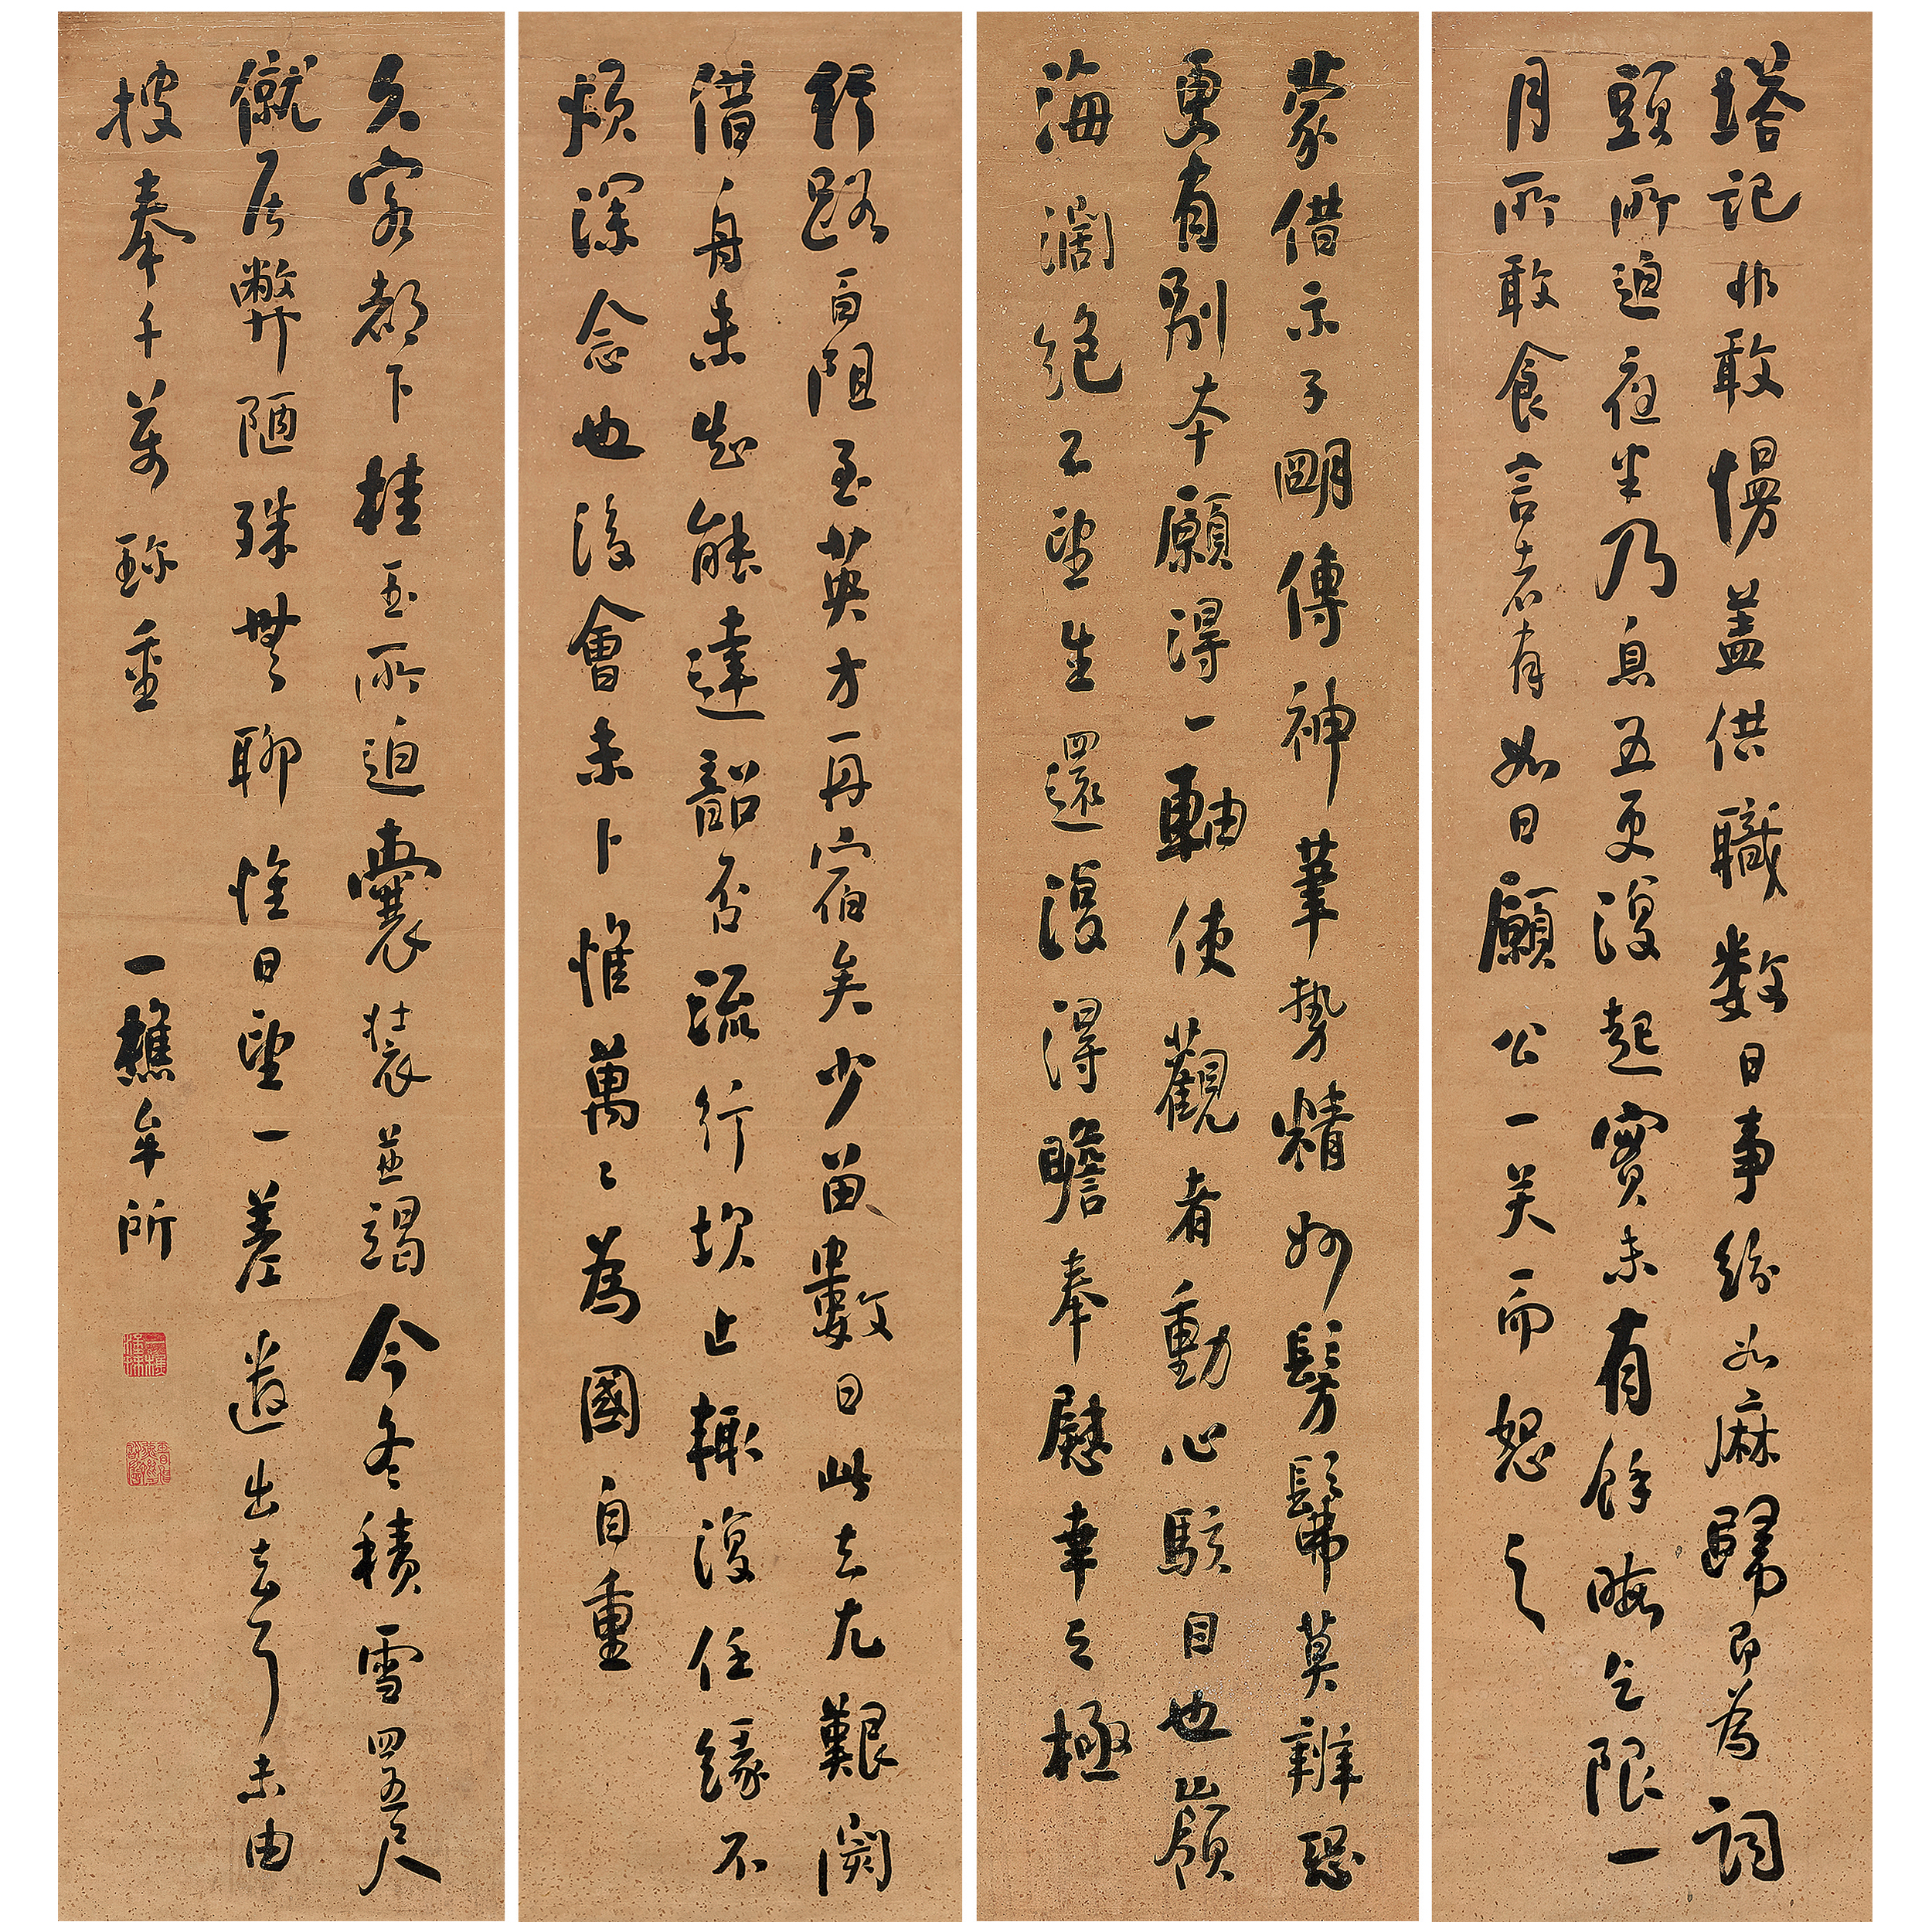 塔記非敢慢蓋供職数日事紛如麻歸即為詞
頭所迫夜坐乃息五更復起實未有餘晦乞限一
月所敢食言者有如日願公一笑而恕之
蒙借示子明傳神筆勢精妙髣髴莫辨恐
更有别本願得一軸使觀者動心駭目也嶺
海濶絶不望生還復得瞻奉慰幸之極
舒路自阻至英方一再宿矣少留數日此去尤艱閡
借舟未知能達韶否流行坎止輒復任緣不
煩深念也後會未卜惟萬〻為國自重
久客都下桂玉所迫囊装並竭今冬積雪四五尺
僦居弊陋殊無聊惟日望一差遣出去耳未由
披奉千萬珎重
一樵牟所